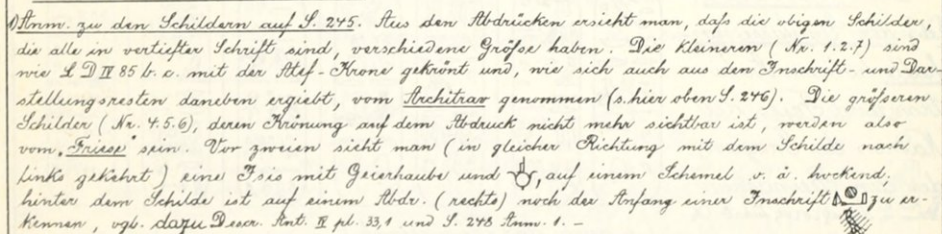 1) Anm. zu den Schildern auf S. 245. Aus den Abdrücken ersieht man, daſs die obigen Schilder,
die alle in vertiefter Schrift sind, verschiedene Gröſse haben. Die kleineren (Nr. 1.2.7) sind
wie L D IV 85 b. c. mit der Atef-Krone gekrönt und, wie sich auch aus den Inschrift- und Dar-
stellungsresten daneben ergiebt, vom Architrav genommen (s. hier oben S. 246). Die gröſseren
Schilder (Nr. 4.5.6), deren Krönung auf dem Abdruck nicht mehr sichtbar ist, werden also
vom „Friese" sein. Vor zweien sieht man (in gleicher Richtung mit dem Schilde nach
links gekehrt) eine Isis mit Geierhaube und , auf einem Schemel o. ä. hockend;
hinter dem Schilde ist auf einem Abdr. (rechts) noch der Anfang einer Inschrift zu er-
kennen, vgl. dazu Descr. Ant. IV pl. 33,1 und S. 248 Anm. 1. –